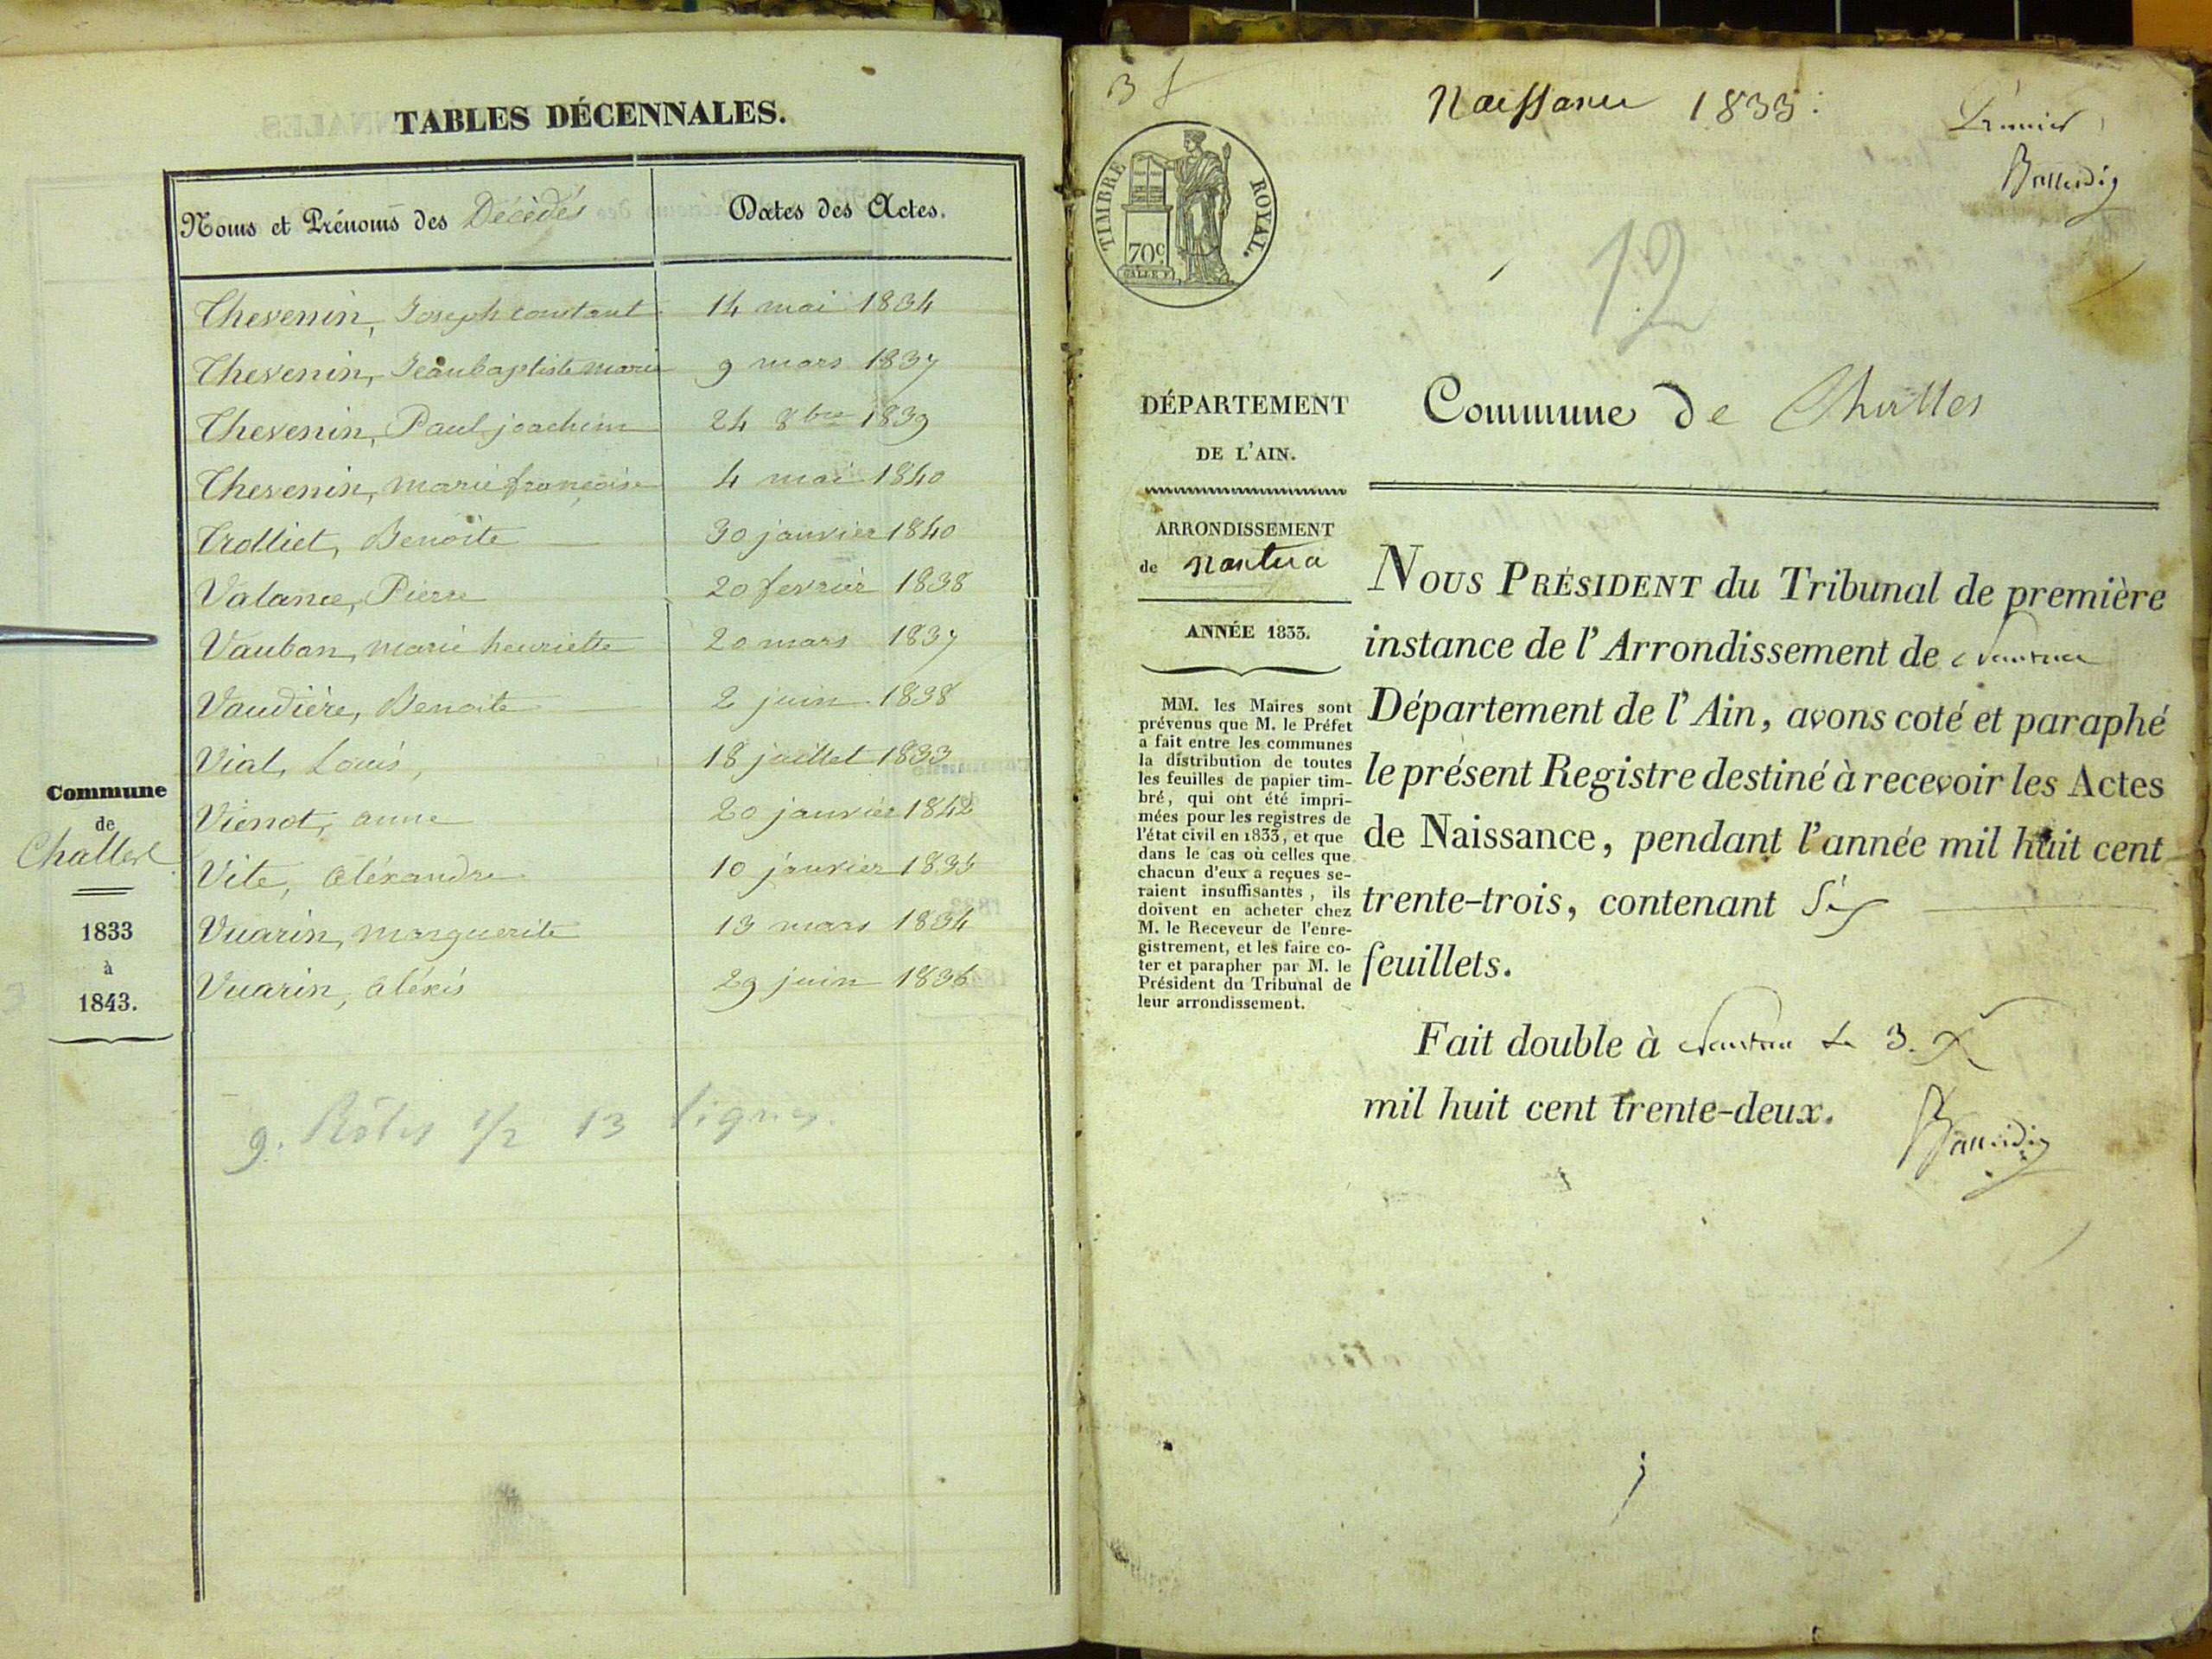 TABLES DÉCENNALES.
Noms et Prénoms des Décédés
Dates des Actes.
Thevenin, Joseph constant 14 mai 1834
Thevenin, Jean baptiste marie 9 mars 1837
Thevenin, Paul joachim 24 8bre 1839
Thevenin, marie françoise 4 mai 1840
Trolliet, Benoite 30 janvier 1840
Valance, Pierre 20 fevrier 1838
Vauban, marie henriette 20 mars 1837
Vaudière, Benoite 2 juin 1838
Vial, Louis, 18 juillet 1833
Vienot, anne 20 janvier 1842
Vite, aléxandre 10 janvier 1835
Vuarin, marguerite 13 mars 1834
Vuarin, aléxis 29 juin 1836
Commune
de
Challex
1833
à
1843.
9. Rôles 1/2 13 lignes.
3 f
Naissance 1833:
Premier
TIMBRE ROYAL.
70c.
12
DÉPARTEMENT
DE L'AIN.
ARRONDISSEMENT
de nantua
ANNÉE 1833.
MM. les Maires sont
prévenus que M. le Préfet
a fait entre les communes
la distribution de toutes
les feuilles de papier tim-
bré, qui ont été impri-
mées pour les registres de
l'état civil en 1833, et que
dans le cas où celles que
chacun d'eux a reçues se-
raient insuffisantes, ils
doivent en acheter chez
M. le Receveur de l'enre-
gistrement, et les faire co-
ter et parapher par M. le
Président du Tribunal de
leur arrondissement.
Commune de Challes
NOUS PRÉSIDENT du Tribunal de première
instance de l'Arrondissement de Nantua
Département de l'Ain, avons coté et paraphé
le présent Registre destiné à recevoir les Actes
de Naissance, pendant l'année mil huit cent
trente-trois, contenant Six
feuillets.
Fait double à Nantua le 3. X
mil huit cent trente-deux.